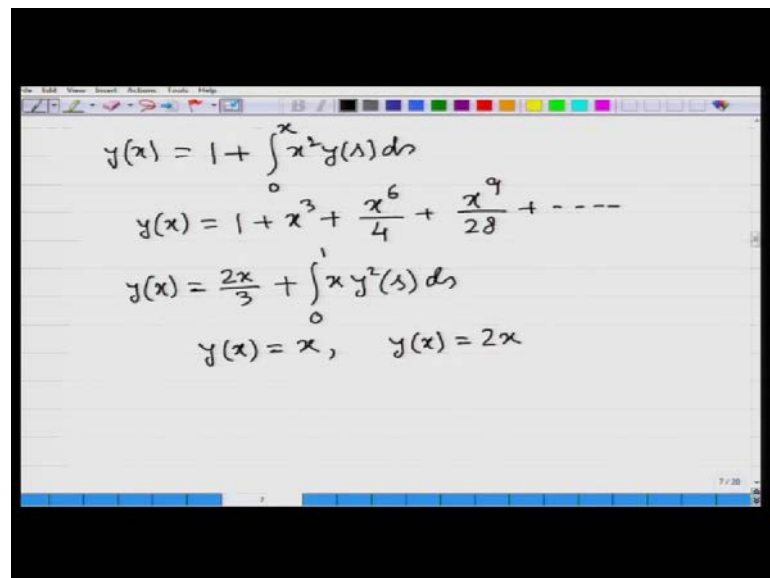 File Edit View Insert Actions Tools Help
y(x) = 1 + ∫₀ˣ x² y(s) ds
y(x) = 1 + x³ + x⁶/4 + x⁹/28 + ----
y(x) = 2x/3 + ∫₀¹ x y²(s) ds
y(x) = x, y(x) = 2x
7 / 20
7